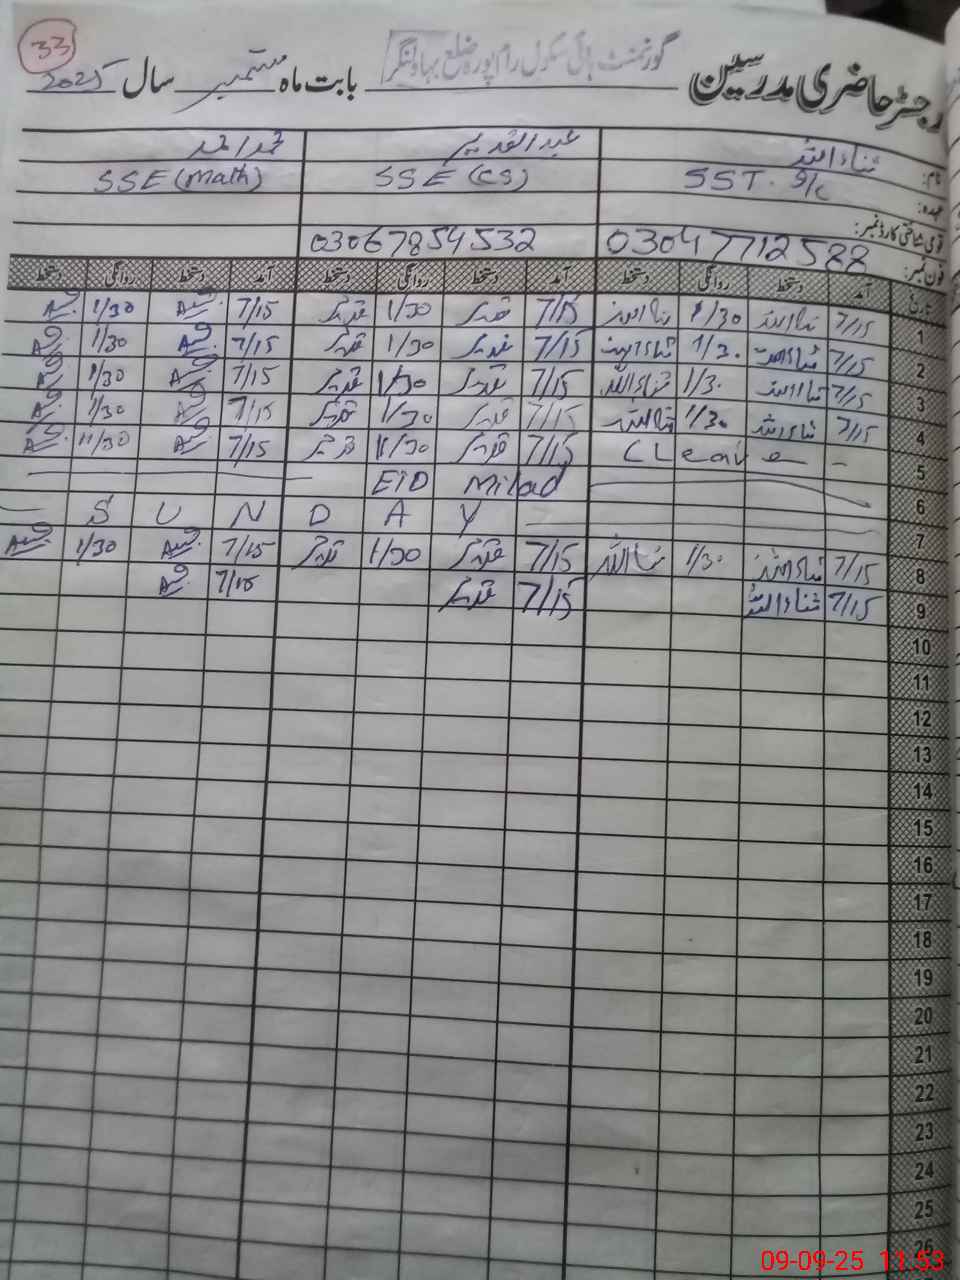 33
رجسٹر حاضری مدرسین گورنمنٹ ہائی سکول رام پورہ ضلع بہاولنگر بابت ماہ ستمبر سال 2025
نام: ثناءاللہ عبدالقدیر محمد احمد
عہدہ: SST. S/c SSE (CS) SSE (Math)
قومی شناختی کارڈ نمبر:
فون نمبر: 03047712588 03067854532
تاریخ آمد دستخط روانگی دستخط آمد دستخط روانگی دستخط آمد دستخط روانگی دستخط
1 7/15 ثناءاللہ 1/30 ثناءاللہ 7/15 قدیر 1/30 قدیر 7/15 1/30
2 7/15 ثناءاللہ 1/30 ثناءاللہ 7/15 قدیر 1/30 قدیر 7/15 1/30
3 7/15 ثناءاللہ 1/30 ثناءاللہ 7/15 قدیر 1/30 قدیر 7/15 1/30
4 7/15 ثناءاللہ 1/30 ثناءاللہ 7/15 قدیر 1/30 قدیر 7/15 1/30
5 C Leave 7/15 قدیر 11/30 قدیر 7/15 11/30
6 EID Milad
7 S U N D A Y
8 7/15 ثناءاللہ 1/30 ثناءاللہ 7/15 قدیر 1/30 قدیر 7/15 1/30
9 7/15 ثناءاللہ 7/15 قدیر 7/15
10
11
12
13
14
15
16
17
18
19
20
21
22
23
24
25
26
09-09-25 11:53